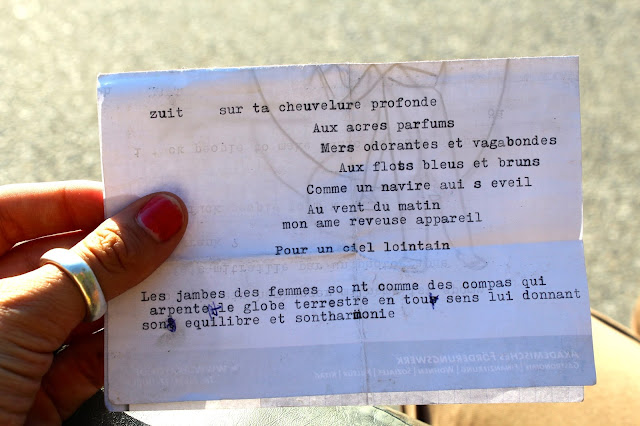 zuit sur ta cheuvelure profonde
Aux acres parfums
Mers odorantes et vagabondes
Aux flots bleus et bruns
Comme un navire aui s eveil
Au vent du matin
mon ame reveuse appareil
Pour un ciel lointain
Les jambes des femmes so nt comme des compas qui
arpente le globe terrestre en tout sens lui donnant
son equilibre et sontharmonie
AKADEMISCHES FÖRDERUNGSWERK
GASTRONOMIE | FINANZIERUNG | WOHNEN | SOZIALES | KULTUR | KITAS